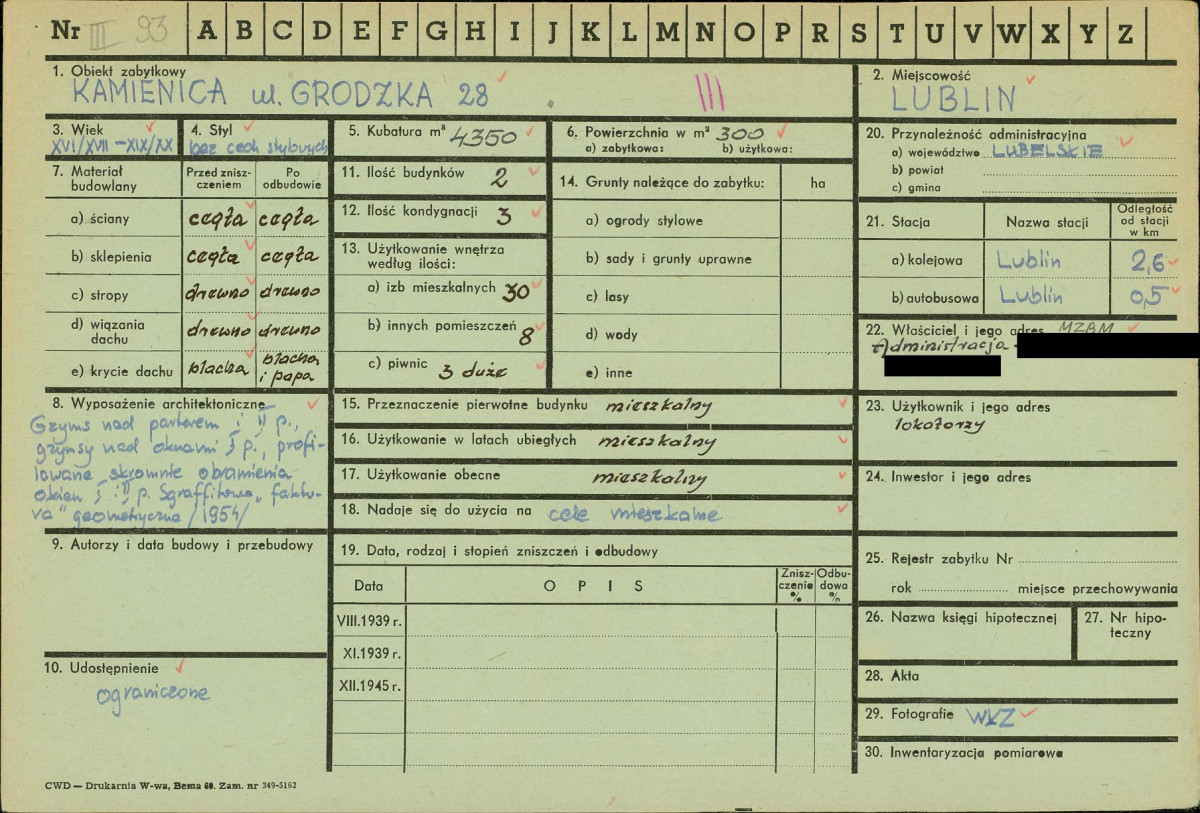 Nr III 93 A B C D E F G H I J K L M N O P R S T U V W X Y Z
1. Obiekt zabytkowy
KAMIENICA ul. GRODZKA 28
III
2. Miejscowość
LUBLIN
3. Wiek
XVI/XVII – XIX/XX
4. Styl
bez cech stylowych
5. Kubatura m³ 4350
6. Powierzchnia w m² 300
a) zabytkowa: b) użytkowa:
20. Przynależność administracyjna
a) województwo LUBELSKIE
b) powiat
c) gmina
7. Materiał budowlany
Przed zniszczeniem
Po odbudowie
a) ściany cegła cegła
b) sklepienia cegła cegła
c) stropy drewno drewno
d) wiązania dachu drewno drewno
e) krycie dachu blacha blacha i papa
11. Ilość budynków 2
12. Ilość kondygnacji 3
13. Użytkowanie wnętrza
według ilości:
a) izb mieszkalnych 30
b) innych pomieszczeń 8
c) piwnic 3 duże
14. Grunty należące do zabytku: ha
a) ogrody stylowe
b) sady i grunty uprawne
c) lasy
d) wody
e) inne
21. Stacja Nazwa stacji Odległość od stacji w km
a) kolejowa Lublin 2,6
b) autobusowa Lublin 0,5
22. Właściciel i jego adres MZBM
Administracja -
8. Wyposażenie architektoniczne
Gzyms nad parterem i II p.,
gzymsy nad oknami I p., profi-
lowane skromnie obramienia
okien I i II p. Sgraffitowa „faktu-
ra" geometryczna /1954/
15. Przeznaczenie pierwotne budynku mieszkalny
16. Użytkowanie w latach ubiegłych mieszkalny
17. Użytkowanie obecne mieszkalny
18. Nadaje się do użycia na cele mieszkalne
23. Użytkownik i jego adres
lokatorzy
24. Inwestor i jego adres
9. Autorzy i data budowy i przebudowy
10. Udostępnienie
ograniczone
19. Data, rodzaj i stopień zniszczeń i odbudowy
Data O P I S Zniszczenie % Odbudowa %
VIII.1939 r.
XI.1939 r.
XII.1945 r.
25. Rejestr zabytku Nr
rok miejsce przechowywania
26. Nazwa księgi hipotecznej
27. Nr hipoteczny
28. Akta
29. Fotografie WKZ
30. Inwentaryzacja pomiarowa
CWD — Drukarnia W-wa, Bema 60. Zam. nr 349-5162